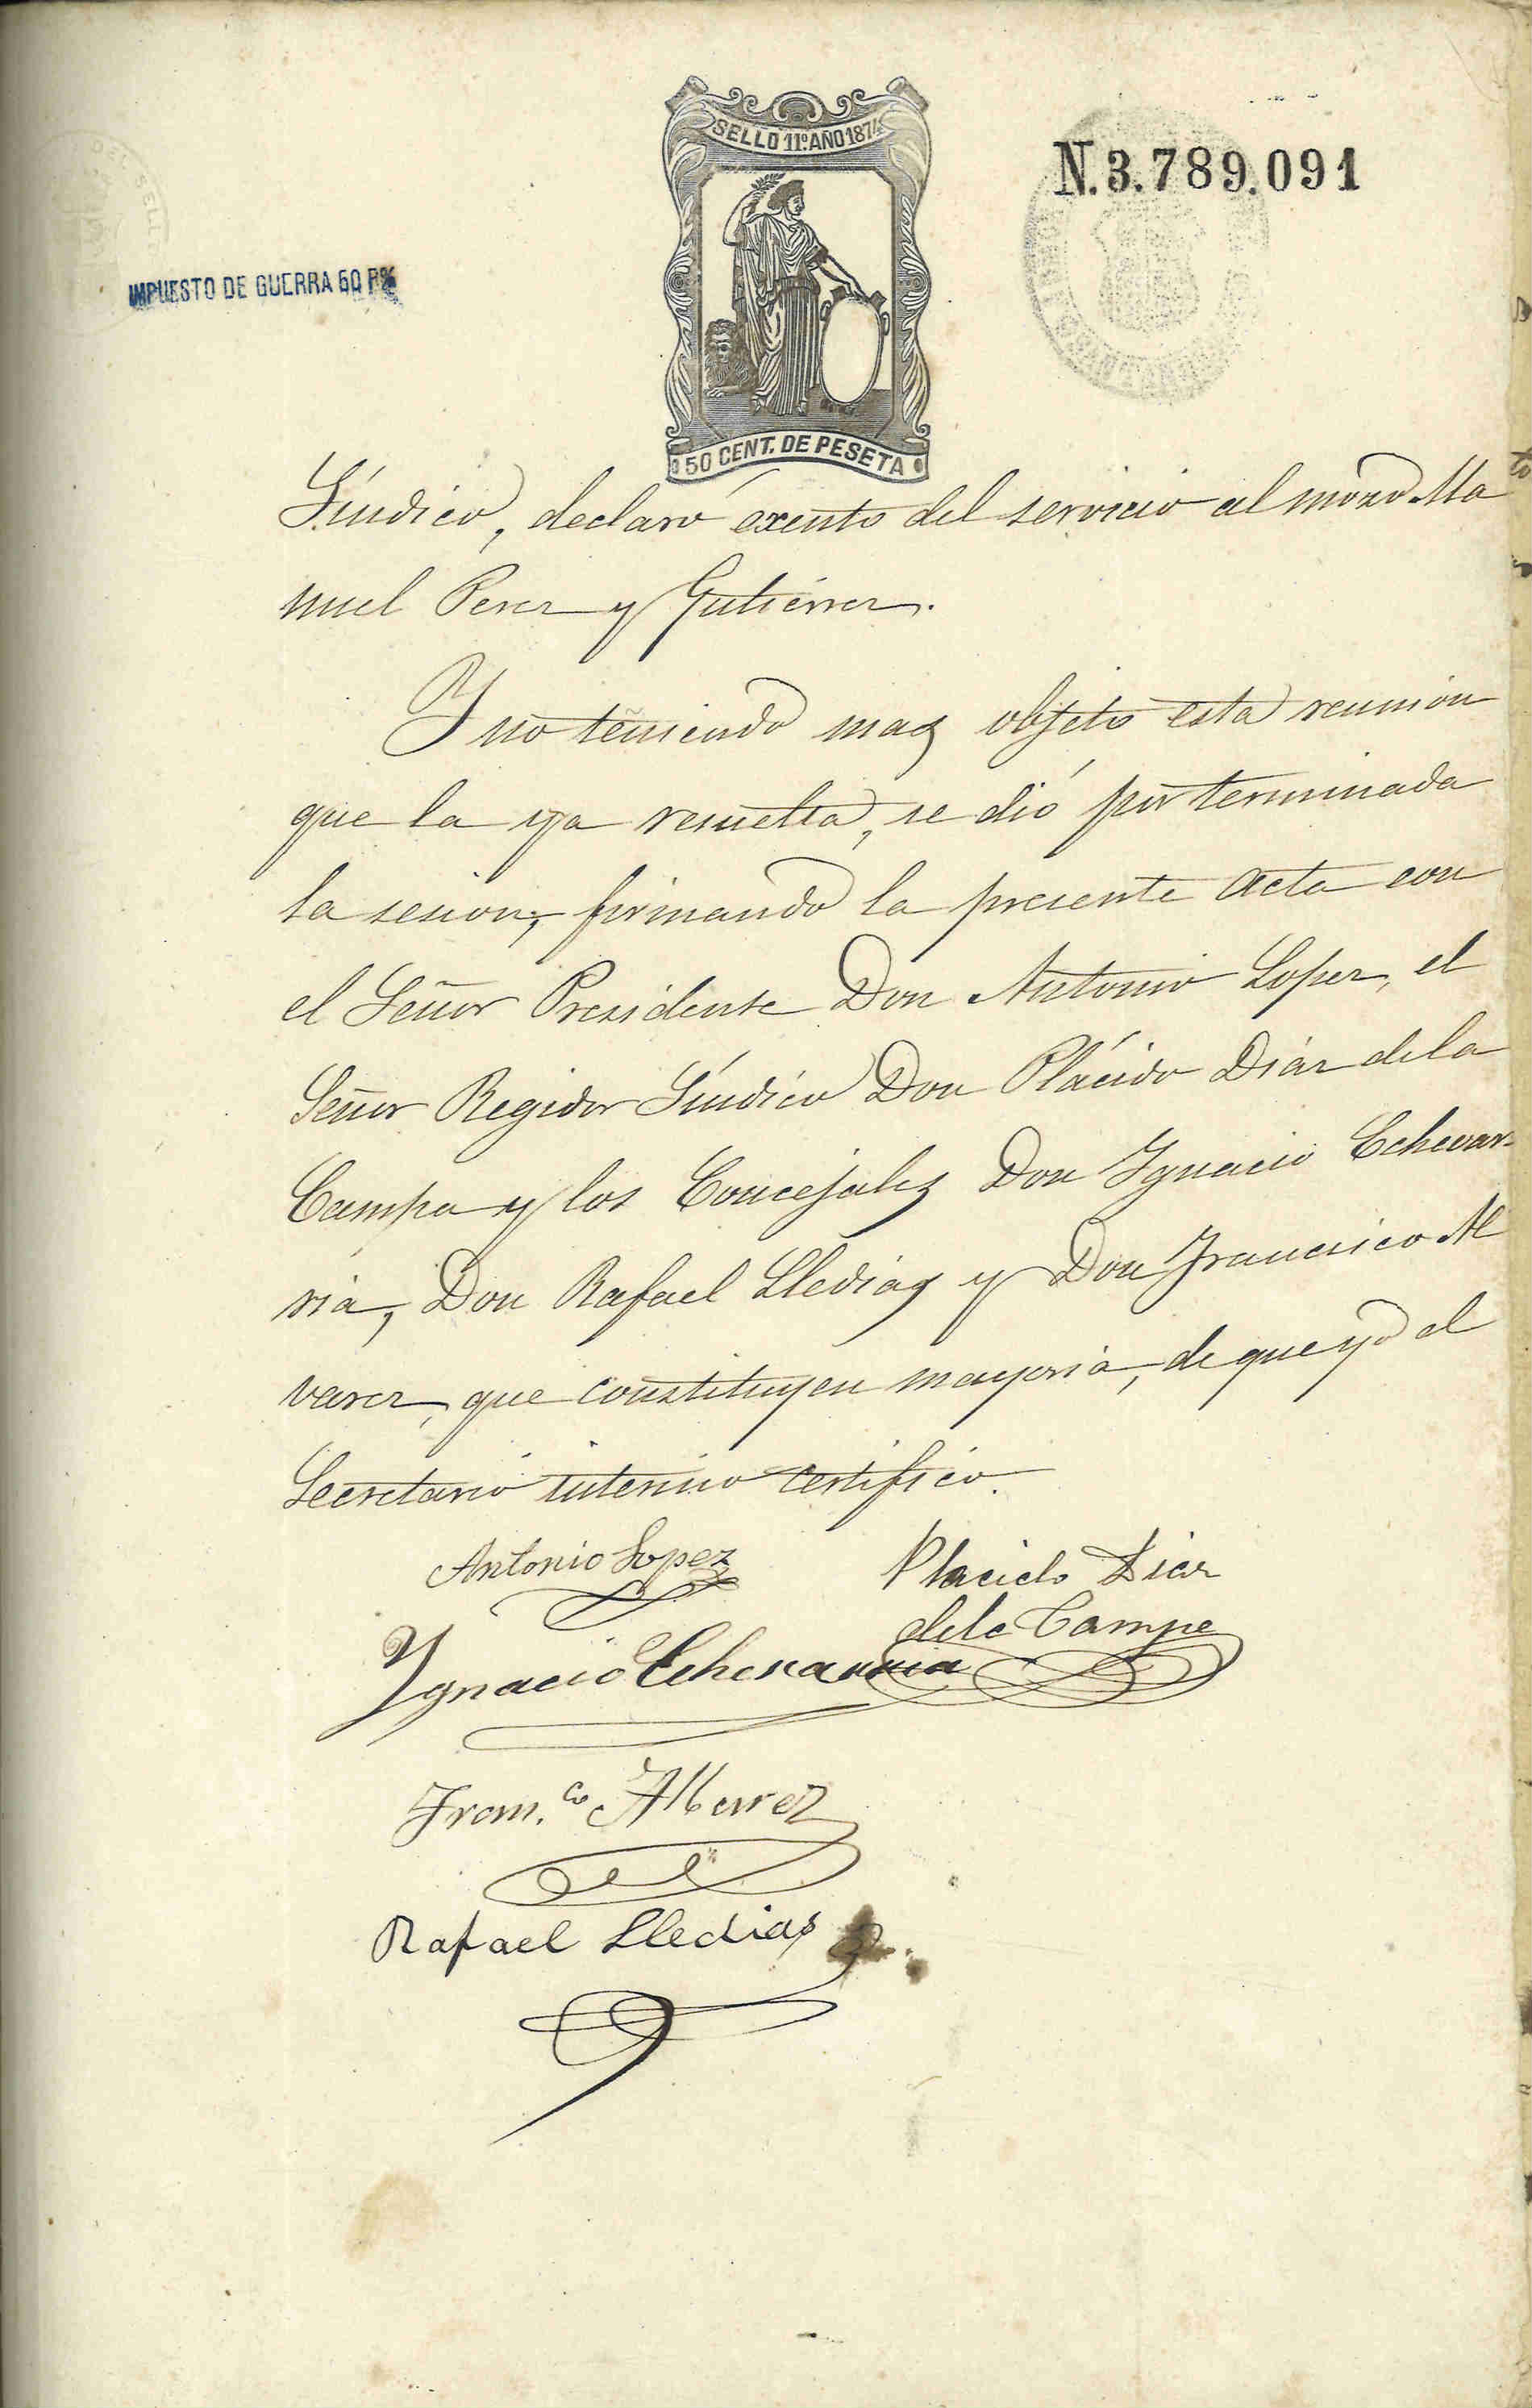 SELLO 11º AÑO 1874
N.3.789.091
IMPUESTO DE GUERRA 50 P%
50 CENT. DE PESETA
Síndico, declaró exento del servicio al mozo Ma
nuel Perez y Gutiérrez.
Y no teniendo mas objeto esta reunion
que la ya resuelta, se dió por terminada
la sesion, firmando la presente acta con
el Señor Presidente Don Antonio Lopez, el
Señor Regidor Síndico Don Plácido Diáz de la
Campa y los Concejales Don Ygnacio Echevar-
ria, Don Rafael Lledias y Don Francisco Al
varez, que constituyen mayoria, de que yo el
Secretario interino certifico.
Antonio Lopez
Placido Diaz
de la Campa
Ygnacio Echevarria
Fran.co Alvarez
Rafael Lledias